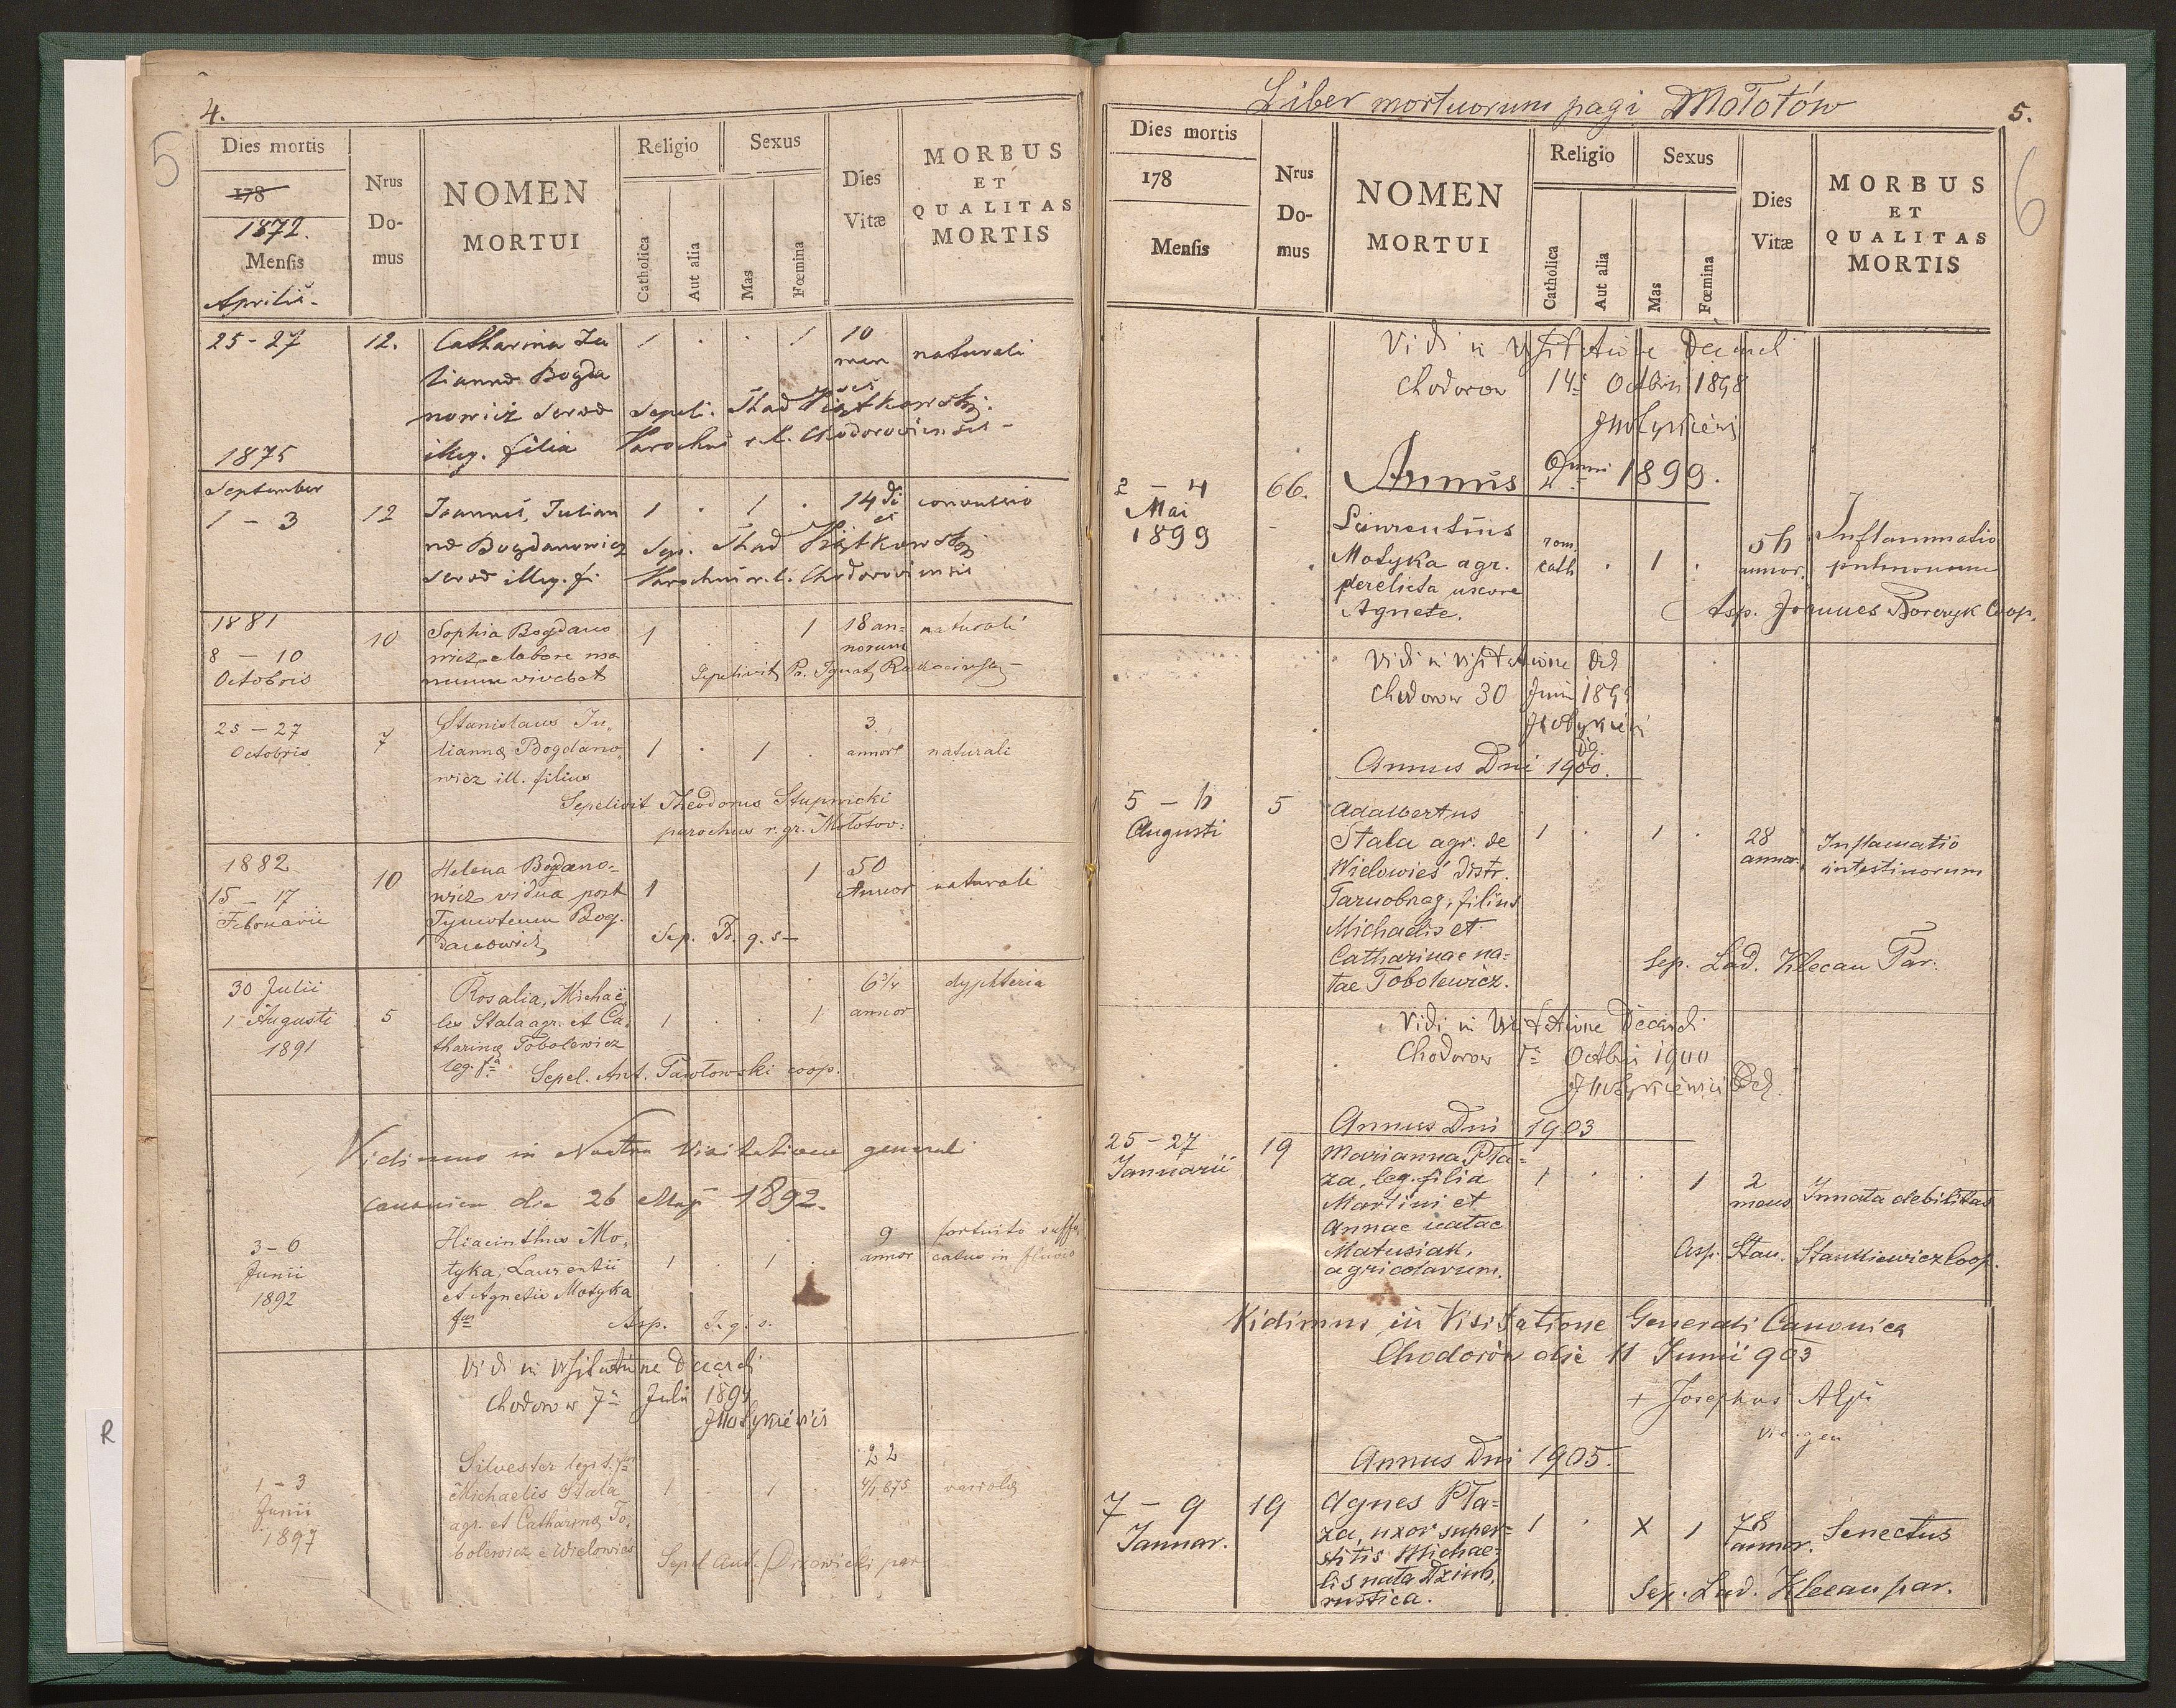 4.
5
Dies mortis
178
1872.
Mensis
Aprilis.
Nrus
Do-
mus
NOMEN
MORTUI
Religio
Catholica
Aut alia
Sexus
Mas
Fœmina
Dies
Vitæ
MORBUS
ET
QUALITAS
MORTIS
25-27
12.
Catharina Ju
lianna Bogda
nowicz
illeg. filia
1 . . 1
10
men
ses
naturali
Sepeli. Thad Piątkowski.
Parochus r.l. Chodoroviensis
1875
September
1 - 3
12
Joannes, Julian
na Bogdanowicz
illeg. fi.
1 . 1 .
14 di
es
convulsio
Sep. Thad Piątkowski
Parochus r.l. Chodoroviensis
1881
8 - 10
Octobris
10
Sophia Bogdano
wicz e labore ma
nuum vivebat
1 . . 1
18 an=
norum
naturali
Sepelivit Pr. Ignat
25-27
Octobris
7
Stanislaus Ju„
liannæ Bogdano„
wicz ill. filius
1 . 1 .
3.
annor
naturali
Sepelivit Theodorus Stupnicki
parochus r. gr. Mołotov:
1882
15 - 17
Februarii
10
Helena Bogdano=
wicz vidua post
Tymoteum Bog-
danowicz
1 1
50
Annor
naturali
Sep. P. q. s-
30 Julii
1 Augusti
1891
5
Rosalia, Michaë
lis Stala agr. et Ca„
tharinæ Tobolewicz
leg. fa
1 . . 1
6 3/4
annor
dyphteria
Sepel. Ant. Pawłowski coop.
Vidimus in Nostra Visitatione generali
canonica die 26 Maji 1892.
3-6
Junii
1892
Hiacinthus Mo„
tyka, Laurentii
et Agnetis Motyka
fus
1 . 1 .
9
annor
fortuito suffo
catus in fluvio
Asp. P. q. s.
Vidi in Visitatione Decanali
Chodorow 7a Julii 1894
1-3
Junii
1897
Silvester legit. fus
Michaelis Stala
agr. et Catharinæ To„
bolewicz e Wielowieś
1 . 1 .
22
4/1 875
variola
Sepel And. par
Liber mortuorum pagi Mołotów
5.
6
Dies mortis
178
Mensis
Nrus
Do-
mus
NOMEN
MORTUI
Religio
Catholica
Aut alia
Sexus
Mas
Fœmina
Dies
Vitæ
MORBUS
ET
QUALITAS
MORTIS
Vidi in Visitatione Decanali
Chodorow 14a Octbris 1898
Annus Domini 1899.
2 - 4
Mai
1899
66.
Laurentius
Motyka agr.
derelicta uxore
Agnete.
rom.
cath . 1 .
56
annor.
Inflammatio
pulmonum
Asp. Joannes Borczyk Coop.
Vidi in Visitatione Decl
Chodorow 30 Junii 1899
Annus Dni 1900.
5 - 6
Augusti
5
Adalbertus
Stala agr. de
Wielowieś distr.
Tarnobrzeg, filius
Michaelis et
Catharinae na=
tae Tobolewicz.
1 . 1 .
28
annor.
Inflamatio
intestinorum
Sep. Lad. Klecan Par.
Vidi in Visitatione Decanali
Chodorow 1a Octbris 1900
Annus Dni 1903
25-27
Januarii
19
Marianna Pła=
za, leg. filia
Martini et
Annae natae
Matusiak,
agricolarum.
1 . . 1
2
mens.
Innata debilitas
Asp. Stan. Stankiewicz Coop.
Vidimus in Visitatione Generali Canonica
Chodorów die 11 Junii 903
+ Josephus
Annus Dni 1905.
7 - 9
Januar.
19
Agnes Pła=
za, uxor super=
stitis Michae=
lis nata Dziub,
rustica.
1 . x 1
78
annor.
Senectus
Sep. Lad. Klecan par.
R